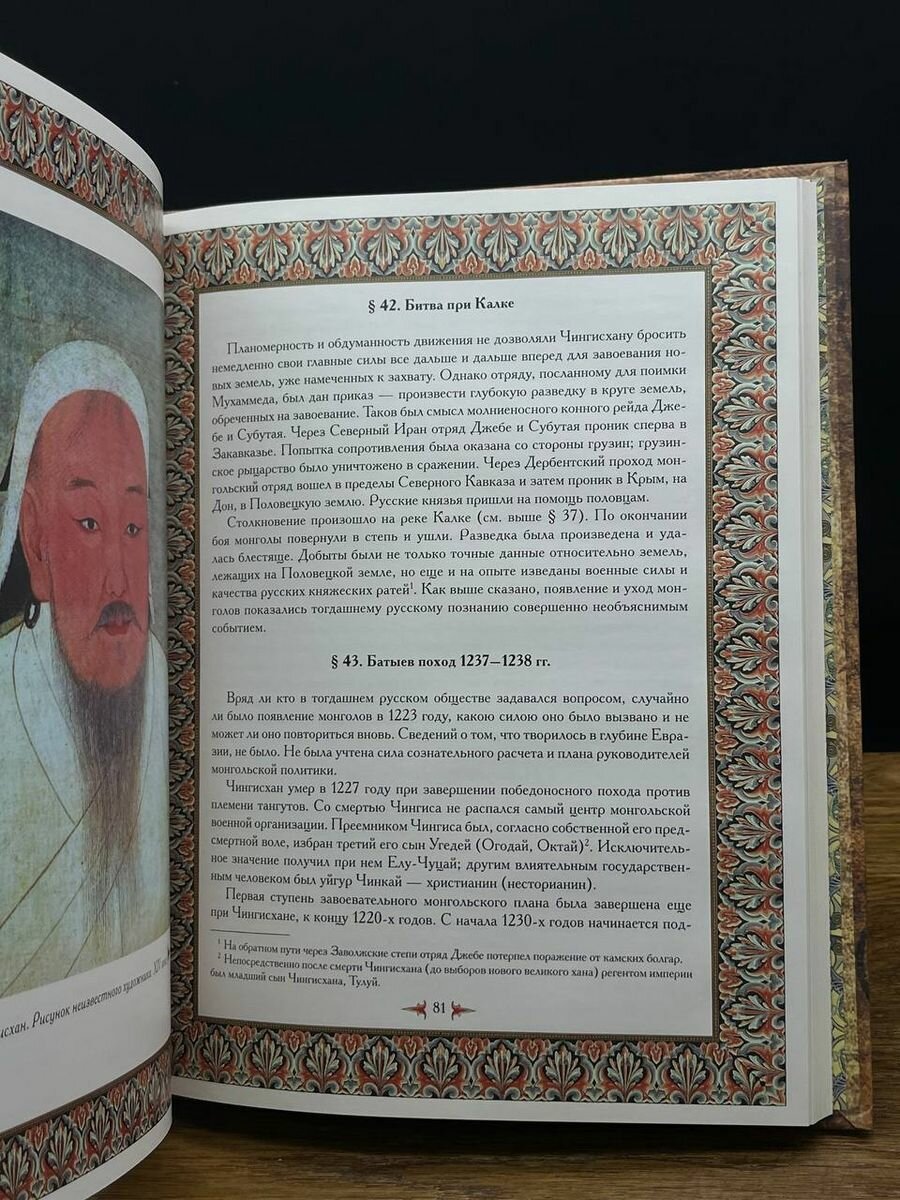 исхан. Рисунок неизвестного художника. XIV
§ 42. Битва при Калке
Планомерность и обдуманность движения не дозволяли Чингисхану бросить
немедленно свои главные силы все дальше и дальше вперед для завоевания но-
вых земель, уже намеченных к захвату. Однако отряду, посланному для поимки
Мухаммеда, был дан приказ — произвести глубокую разведку в круге земель,
обреченных на завоевание. Таков был смысл молниеносного конного рейда Дже-
бе и Субутая. Через Северный Иран отряд Джебе и Субутая проник сперва в
Закавказье. Попытка сопротивления была оказана со стороны грузин; грузин-
ское рыцарство было уничтожено в сражении. Через Дербентский проход мон-
гольский отряд вошел в пределы Северного Кавказа и затем проник в Крым, на
Дон, в Половецкую землю. Русские князья пришли на помощь половцам.
Столкновение произошло на реке Калке (см. выше § 37). По окончании
боя монголы повернули в степь и ушли. Разведка была произведена и уда-
лась блестяще. Добыты были не только точные данные относительно земель,
лежащих на Половецкой земле, но еще и на опыте изведаны военные силы и
качества русских княжеских ратей¹. Как выше сказано, появление и уход мон-
голов показались тогдашнему русскому познанию совершенно необъяснимым
событием.
§ 43. Батыев поход 1237—1238 гг.
Вряд ли кто в тогдашнем русском обществе задавался вопросом, случайно
ли было появление монголов в 1223 году, какою силою оно было вызвано и не
может ли оно повториться вновь. Сведений о том, что творилось в глубине Евра-
зии, не было. Не была учтена сила сознательного расчета и плана руководителей
монгольской политики.
Чингисхан умер в 1227 году при завершении победоносного похода против
племени тангутов. Со смертью Чингиса не распался самый центр монгольской
военной организации. Преемником Чингиса был, согласно собственной его пред-
смертной воле, избран третий его сын Угедей (Огодай, Октай)². Исключитель-
ное значение получил при нем Елу-Чуцай; другим влиятельным государствен-
ным человеком был уйгур Чинкай — христианин (несторианин).
Первая ступень завоевательного монгольского плана была завершена еще
при Чингисхане, к концу 1220-х годов. С начала 1230-х годов начинается под-
¹ На обратном пути через Заволжские степи отряд Джебе потерпел поражение от камских болгар.
² Непосредственно после смерти Чингисхана (до выборов нового великого хана) регентом империи
был младший сын Чингисхана, Тулуй.
81